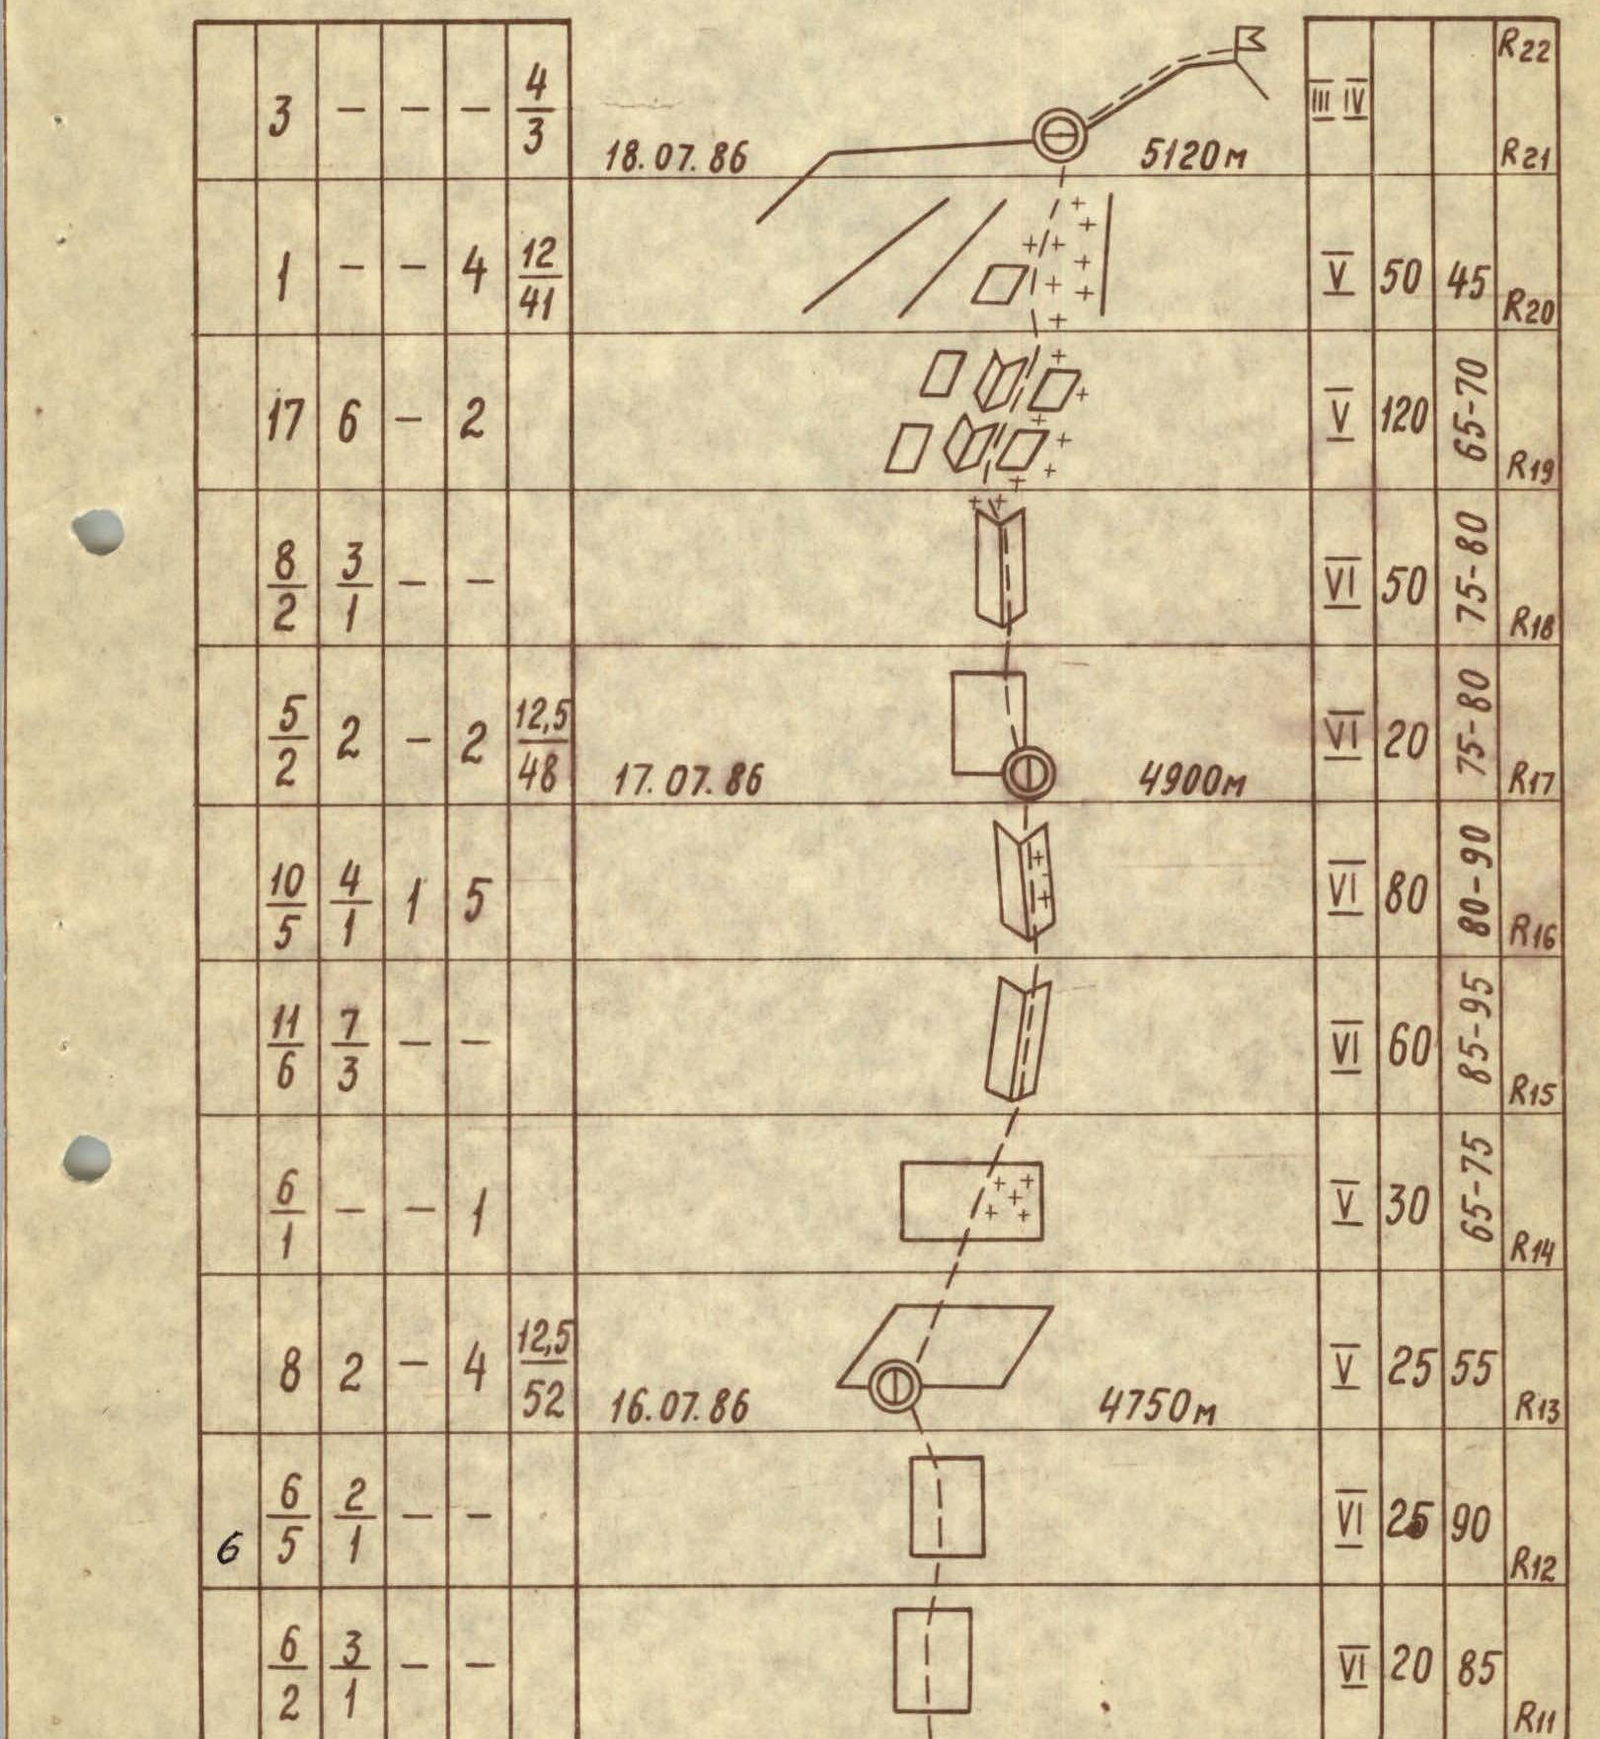 3 — — — 4/3 18.07.86 5120м III IV R22
R21
1 — — 4 12/41 V 50 45 R20
17 6 — 2 V 120 65-70 R19
8/2 3/1 — — VI 50 75-80 R18
5/2 2 — 2 12,5/48 17.07.86 4900м VI 20 75-80 R17
10/5 4/1 1 5 VI 80 80-90 R16
11/6 7/3 — — VI 60 85-95 R15
6/1 — — 1 V 30 65-75 R14
8 2 — 4 12,5/52 16.07.86 4750м V 25 55 R13
6 6/5 2/1 — — VI 25 90 R12
6/2 3/1 — — VI 20 85 R11